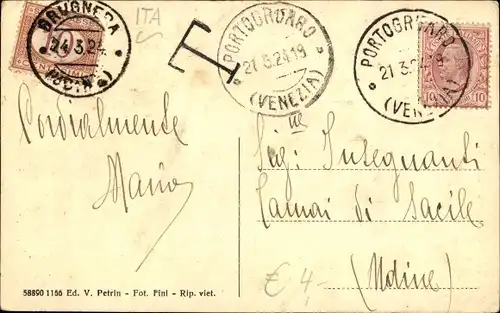 BRUGNERA
24.3.24
ITA
T
PORTOGRUARO
21.3.24 19
(VENEZIA)
PORTOGRUARO
21.3.24 19
(VENEZIA)
10
10
10
Cordialmente
Mario
Sig: Insegnanti
di Sacile
(Udine)
€ 4,-
58890 1156 Ed. V. Petrin - Fot. Fini - Rip. viet.